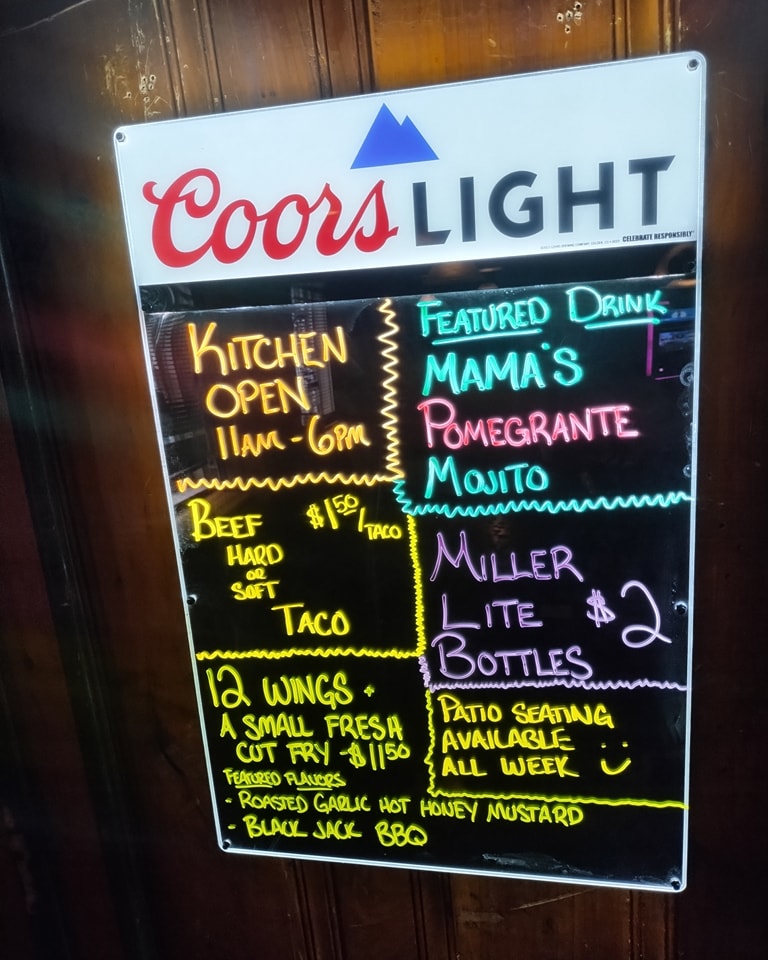 Coors LIGHT
CELEBRATE RESPONSIBLY
KITCHEN
OPEN
11AM - 6PM
FEATURED DRINK
MAMA'S
POMEGRANTE
MOJITO
BEEF $1.50/TACO
HARD
OR
SOFT
TACO
MILLER
LITE $2
BOTTLES
12 WINGS +
A SMALL FRESH
CUT FRY - $11.50
FEATURED FLAVORS
- ROASTED GARLIC HOT HONEY MUSTARD
- BLACK JACK BBQ
PATIO SEATING
AVAILABLE
ALL WEEK